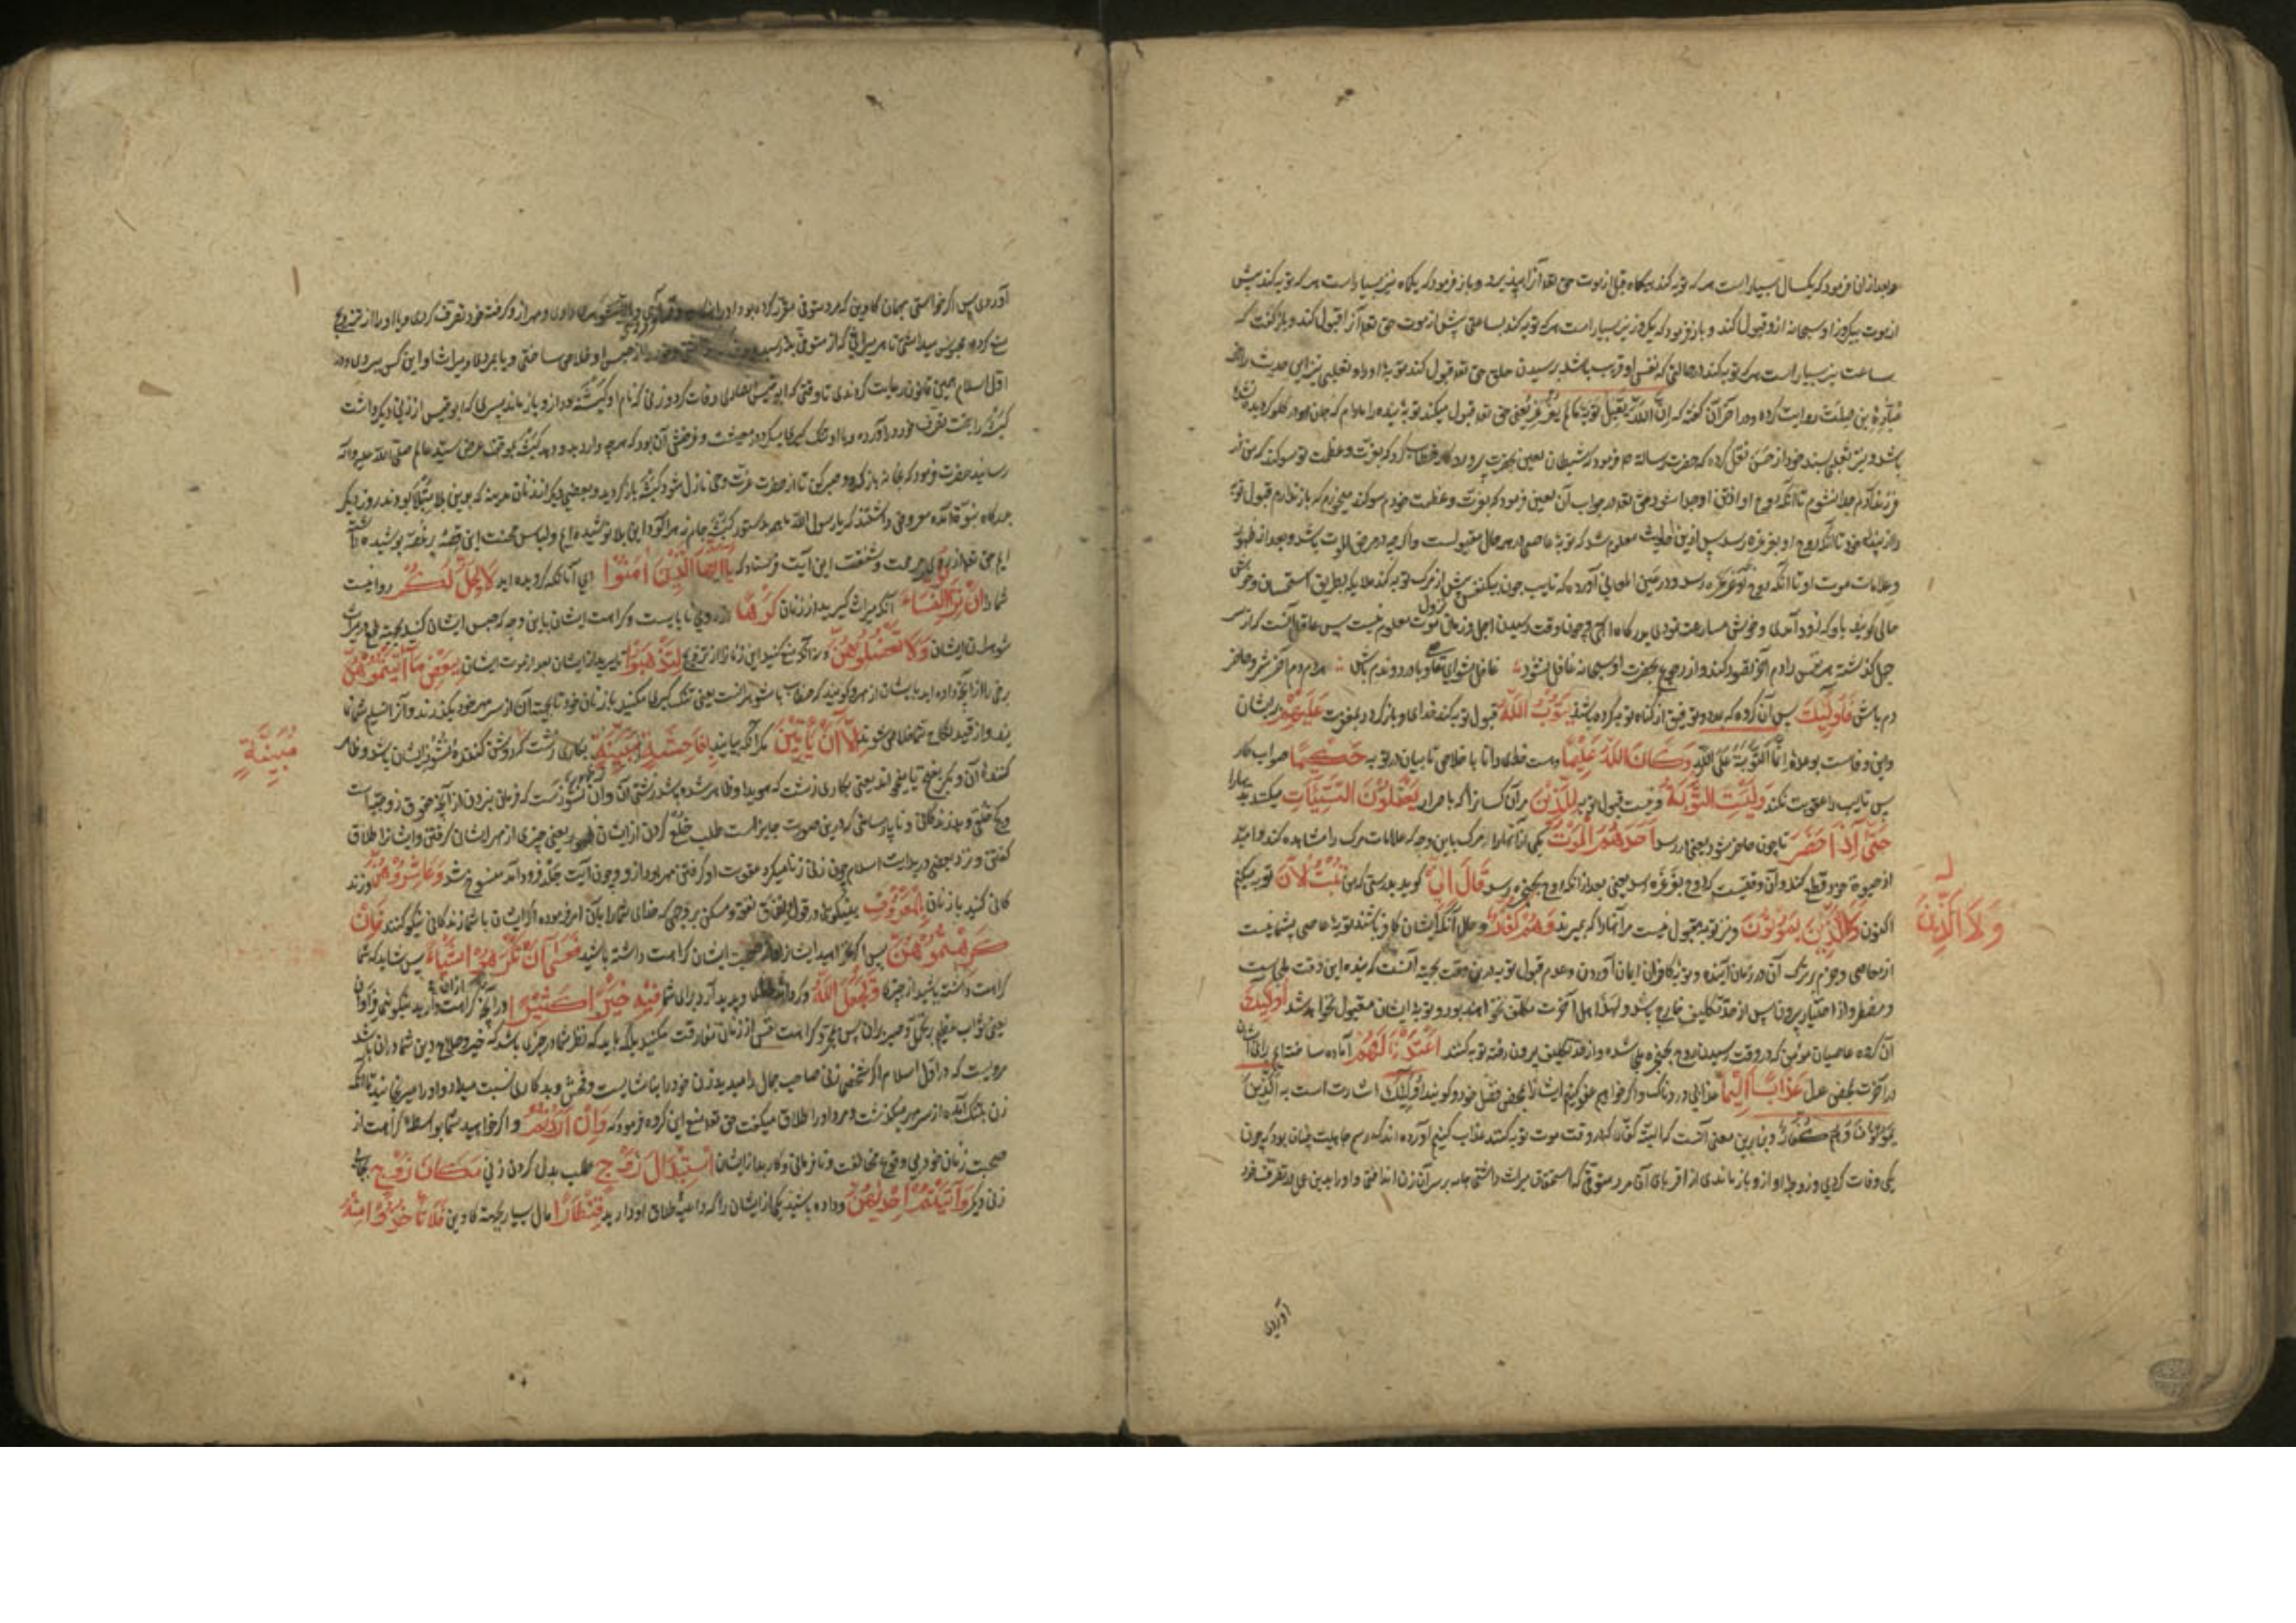 و بعد از ان فرمود که یکسال بسیار است هر که توبه کند بیکماه قبل از موت حق تعالی آنرا می‌پذیرد و باز فرمود که یکماه نیز بسیار است هر که توبه کند پیش
از موت بیکروز او سبحانه ازو قبول کند و باز فرمود که یکروز نیز بسیار است هر که توبه کند بساعتی پیش از موت حق تعالی آنرا قبول کند و باز گفت که
ساعت نیز بسیار است هر که توبه کند در حالتی که نفس او قریب باشد برسیدن حلق حق تعالی قبول کند توبهٔ او را و ثعلبی نیز این حدیث را از
عبادة بن صامت روایت کرده و در آخر آن گفته که ان الله یقبل توبة مالم یغرغر یعنی حق تعالی قبول میکند توبه بنده را مادام که جان او در گلو گردید نشده
باشد و نیز ثعلبی بسند خود از حسن نقل کرده که حضرت رسالة فرمود که شیطان لعین بحضرت پروردگار خطاب کرد که بعزت و عظمت تو سوکند که من از
فرزند آدم جدا نشوم تا آنکه روح او از تن او جدا شود حق تعالی در جواب آن لعین فرمود که بعزت و عظمت خودم سوکند میخورم که باز ندارم قبول توبه
را از بنده خود تا آنکه روح او بغرغره رسد پس ازین احادیث معلوم شد که توبه عاصی در هر حال مقبولست و اگرچه در مرض الموت باشد و بعد از ظهور
و علامات موت او تا آنکه روح او بغرغره رسد و در عین المعانی آورده که تایب چون بیکنفس پیش از مرگ توبه کند ملایکه بطریق استحسان و خوش
حالی گویند باو که زود آمدی و خوش مسارعت نمودی بدرگاه الهی و چون وقت رسیدن اجل و زمان نزول موت معلوم نیست پس عاقل آنست که از سر
جهل گذشته هر نفس را دم آخر تصور کند و از رجوع بحضرت او سبحانه غافل نشود غافل مشو ای عاقل و باورد و ندم باش مردم دم آخر شمر و حاضر
دم باش فَأُولَٰئِكَ پس آن گروه که بزودی توفیق از گناه توبه کرده باشند يَتُوبُ اللَّهُ قبول توبه کند خدای و باز گردد بمغفرت عَلَيْهِمْ بر ایشان
و این وفاست بوعده إِنَّمَا التَّوْبَةُ عَلَى اللَّهِ وَكَانَ اللَّهُ عَلِيمًا و هست خدای دانا باخلاص تایبان در توبه حَكِيمًا صواب کار
پس تایب را عقوبت نکند وَلَيْسَتِ التَّوْبَةُ و نیست قبول توبه لِلَّذِينَ مر آن کسانرا که باصرار يَعْمَلُونَ السَّيِّئَاتِ میکنند بدیها را
حَتَّىٰ إِذَا حَضَرَ تا چون حاضر شود یعنی رسد أَحَدَهُمُ الْمَوْتُ یکی از آنها را مرگ باین وجه که علامات مرگ را مشاهده کند و امید
از حیوة خود قطع کند و آن وقتیست که روح بغرغره رسد یعنی بعد از آنکه روح بحنجره رسد قَالَ إِنِّي گوید بدرستی که من تُبْتُ الْآنَ توبه میکنم
اکنون وَلَا الَّذِينَ يَمُوتُونَ و نیز توبه مقبول نیست مر آنها را که بمیرند وَهُمْ كُفَّارٌ و حال آنکه ایشان کافر باشند توبهٔ عاصی پشمانیست
از معاصی و جزم بر ترک آن در زمان آینده و توبهٔ کافران ایمان آوردن و عدم قبول توبه در ین وقت بجهة آنست که بنده این وقت ملجاست
و مضطر و از اختیار بیرون پس از حد تکلیف خارج باشد و لهذا اهل آخرت مکلف نخواهند بود و توبهٔ ایشان مقبول نخواهد شد أُولَٰئِكَ
آن گروه عاصیان مؤمن که در وقت رسیدن روح بحنجره ملجا شده و از حد تکلیف بیرون رفته توبه کنند أَعْتَدْنَا لَهُمْ آماده ساخته‌ایم برای ایشان
در آخرت بمحض عدل عَذَابًا أَلِيمًا عذابی دردناک و اگر خواهیم عفو کنیم ایشانرا بمحض فضل خود و گویند اولئک اشارتست به الذین
یموتون و هم کفار و بنابرین معنی آنست که البته کفار که در وقت موت توبه کنند عذاب کنیم آورده‌اند که رسم جاهلیت چنان بود که چون
یکی وفات کردی و زوجهٔ او ازو باز ماندی از اقربای آن مرد متوفی که استحقاق میراث داشتی جامه بر سر آن زن انداختی و او را بدین عمل در تصرف خود
آوردی
وَلَا الَّذِينَ
آوردی پس اگر خواستی بهمان کاوین که مرد متوفی مقرر کرده بود او را بشوهری دادی و مهر ازو گرفته خود تصرف کردی و یا او را از تزویج
منع کرده محبوس میداشتی تا هر میراثی که از متوفی بدو رسیده خود را از حبس او خلاص ساختی و یا بمردی و میراث او این کس بردی و در
اول اسلام همین قانون رعایت کردندی تا وقتی که ابو قیس انصاری وفات کرد و زنی که نام او کبیشه بود ازو باز ماند پسری که ابو قیس از زنی دیگر داشت
کبیشه را بتحت تصرف خود درآورده و با او تنگ گیری میکرد در معیشت و غرضش آن بود که هر چه دارد بدو دهد کبیشه بموقف عرض سید عالم صلی الله علیه و آله
رسانید حضرت فرمود که بخانه باز گرد و صبر کن تا از حضرت عزت وحی نازل شود کبیشه باز گردید و بعضی دیگر از زنان مدینه که بدین بلا مبتلا بودند روز دیگر
بدرگاه نبوی آمده معروض داشتند که یا رسول الله ما هم بدستور کبیشه جام زهر آلود این بلا نوشیده‌ایم و لباس محنت این قصه پر غصه پوشیده
ایم حق تعالی از روی مرحمت و شفقت این آیت فرستاد که يَا أَيُّهَا الَّذِينَ آمَنُوا ای آنانکه گرویده‌اید لَا يَحِلُّ لَكُمْ روا نیست
شما را أَنْ تَرِثُوا النِّسَاءَ آنکه میراث گیرید از زنان كَرْهًا از روی نابایست و کراهت ایشان باین وجه که حبس ایشان کنید بجهة طمع در میراث
شوهران ایشان وَلَا تَعْضُلُوهُنَّ و نه آنکه منع کنید این زنانرا از تزویج لِتَذْهَبُوا تا ببرید از ایشان بعد از موت ایشان بِبَعْضِ مَا آتَيْتُمُوهُنَّ
برخی را از آنچه داده‌اید بایشان از مهر و گویند که خطاب با شوهرانست یعنی تنگ گیری مکنید با زنان خود تا بجهت آن از سر مهر خود بگذرند و آنرا تسلیم شما نما
یند و از قید نکاح شما خلاص شوند إِلَّا أَنْ يَأْتِينَ مگر آنکه بیایند بِفَاحِشَةٍ مُبَيِّنَةٍ بکاری زشت که روشن کننده نشوز ایشان باشد و ظاهر
کنندهٔ آن و بکر بفتح یا میخواند یعنی بکاری زشت که هویدا و ظاهر شده باشد زشتی آن و آن نشوز است که فرمان نبردن از آنچه حقوق زوجیت است
کفتی و نزد بعضی در بدایت اسلام چون زنی زنا میکرد عقوبت او گرفتن مهر بود ازو و چون آیت جلد فرود آمد منسوخ شد وَعَاشِرُوهُنَّ و زند
گانی کنید با زنان بِالْمَعْرُوفِ بنیکوئی در قول و انفاق نفقه و مسکن بر وجهی که خدای شما را بآن امر فرموده تا ایشان با شما زندگانی نیکو کنند فَإِنْ
كَرِهْتُمُوهُنَّ پس اگر نخواهید ایشانرا و از صحبت ایشان کراهت داشته باشید فَعَسَىٰ أَنْ تَكْرَهُوا شَيْئًا پس شاید که شما
کراهت داشته باشید از چیزی وَيَجْعَلَ اللَّهُ و گرداند خدای و پدید آرد برای شما فِيهِ خَيْرًا كَثِيرًا در آنچه از آن کراهت دارید نیکوئی فراوان
یعنی ثواب عظیم بر تحمل و صبر بر آن پس بمجرد کراهت نفس از زنان مفارقت مکنید بلکه باید که نظر شما در چیزی باشد که خیر و صلاح دین شما در آن باشد
مرویست که در اول اسلام اگر شخصی زنی صاحب جمال را میدید زن خود را بناشایست و فحش و بدکاری نسبت میداد و او را میرنجانید تا آنکه
زن بتنگ آمده از سر مهر میگذشت و مرد او را طلاق میگفت حق تعالی منع این گروه فرمود که وَإِنْ أَرَدْتُمُ و اگر خواهید شما بواسطهٔ کراهت از
صحبت زنان خود بی وقوع مخالفت و نافرمانی و کار بد از ایشان اسْتِبْدَالَ زَوْجٍ طلب بدل کردن زنی مَكَانَ زَوْجٍ بجای
زنی دیگر وَآتَيْتُمْ إِحْدَاهُنَّ و داده باشید یکی از ایشان را که داعیهٔ طلاق او دارید قِنْطَارًا مال بسیار بجهة کاوین فَلَا تَأْخُذُوا مِنْهُ
مُبَيِّنَةٍ